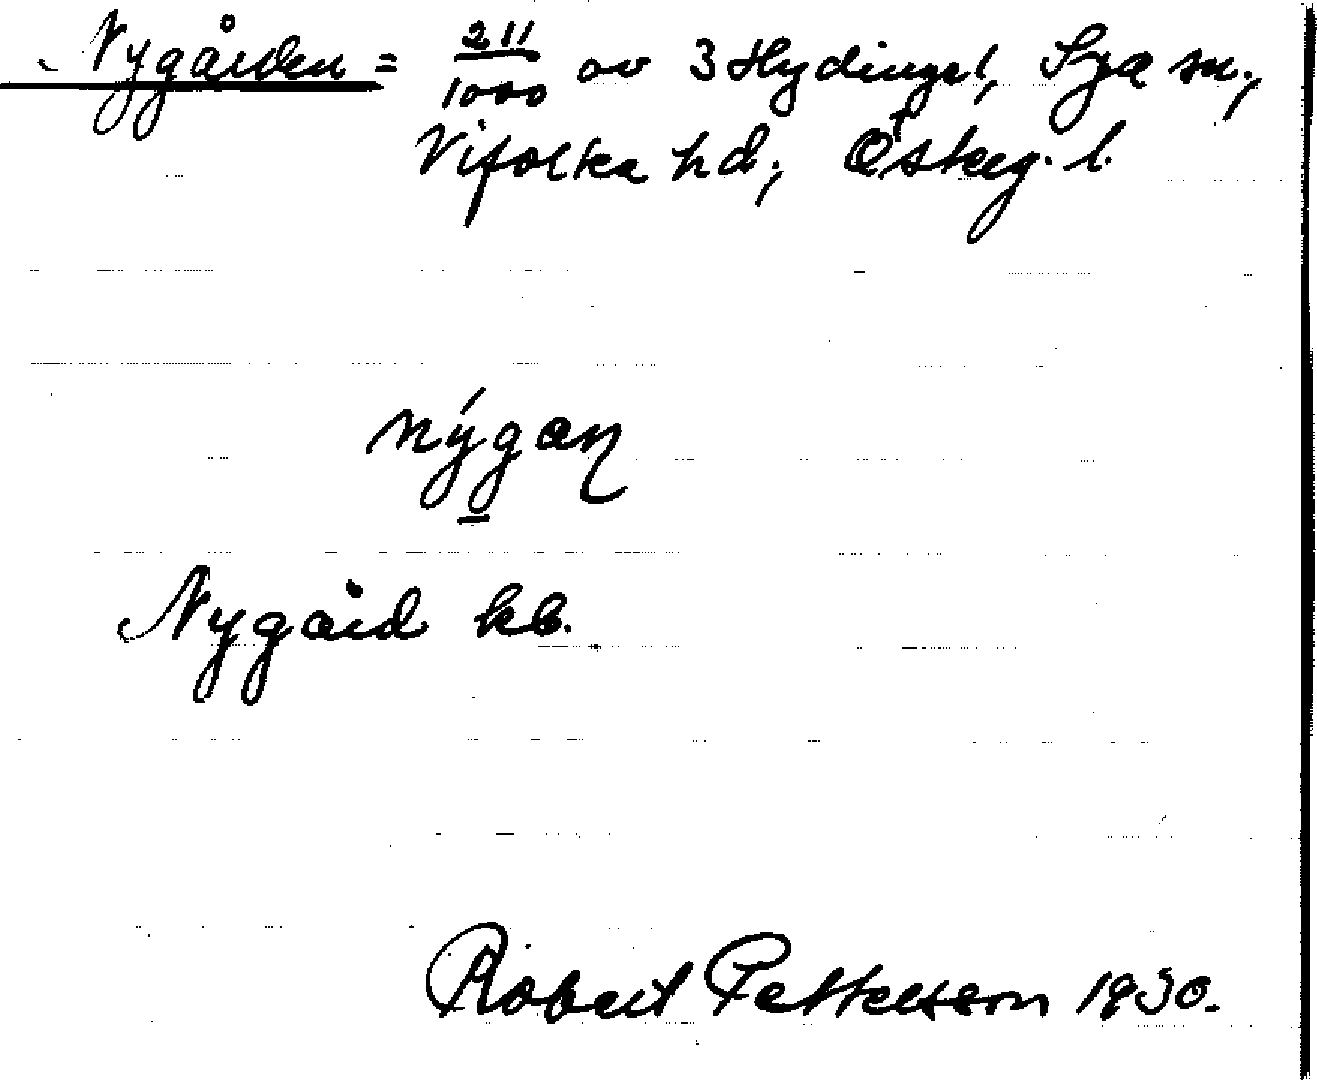 Nygården = 211/1000 av 3 Hydinge l, Sya sn.,
Vifolka hd; Österg. l.
nýgaɳ
Nygård kb.
Robert Pettersson 1930.